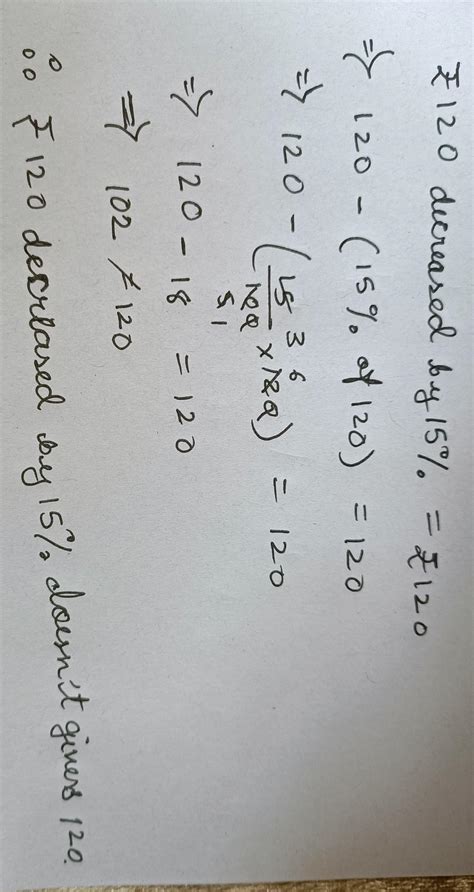 ₹120 decreased by 15% = ₹120
⇒ 120 - (15% of 120) = 120
⇒ 120 - (15/100 3 5 1 × 120 6) = 120
⇒ 120 - 18 = 120
⇒ 102 ≠ 120
∴ ₹120 decreased by 15% doesn't givers 120.